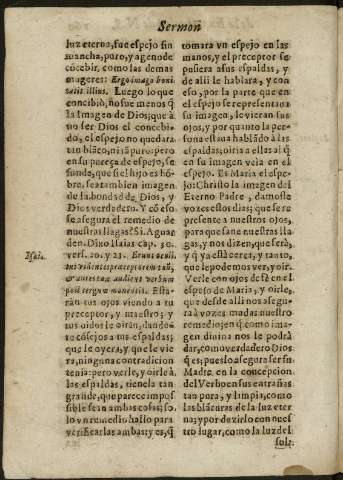 Sermon
luz eterna, fue espejo sin
mancha, puro, y ageno de
cõcebir, como las demas
mugeres: Ergo imago boni
tatis illius. Luego lo que
concibiò, no fue menos q̃
la Imagen de Dios; que à
no ser Dios el concebi-
do, el espejo no quedara
tan blãco, ni tã puro: pero
en su pureza de espejo, se
funde, que si el hijo es hõ-
bre, sea tambien imagen
de la bondad de Dios, y
Dios verdadero. Y cõ esso
se assegura el remedio de
nuestras llagas? Si. Aguar
den. Dixo Isaias cap. 30.
vers. 20. y 21. Erunt oculi
tui videntes præceptorem tuũ,
& aures tuæ audient verbum
post tergum monentis. Esta-
ràn tus ojos viendo a tu
preceptor, y maestro; y
tus oidos le oiràn, dandote
cõsejos a tus espaldas;
que le oyera, y que le vie
ra, ninguna contradicion
tenia: pero verle, y oirle à
las espaldas, tienela tan
grande, que parece impos
sible sean ambas cosas; so.
lo vn remedio hallo para
verificarlas ambas; y es, q̃
Isaia.
tomara vn espejo en las
manos, y el preceptor se
pusiera a sus espaldas, y
de alli le hablara, y con
esso, por la parte que en
el espejo se representa su
imagen, le vieran sus
ojos, y por quanto la per-
sona estaua hablãdo à las
espaldas, oiria a ellas al q̃
en su imagen veia en el
espejo. Es Maria el espe-
jo: Christo la imagen del
Eterno Padre, damosle
vozes estos dias; que se re
presente a nuestros ojos,
para que sane nuestras lla
gas, y nos dizen, que serà,
y q̃ ya està cerca, y tanto,
que le podemos ver, y oir.
Verle con ojos de fè en el
espejo de Maria, y oirle,
que desde alli nos assegu-
ra à vozes mudas nuestro
remedio; en q̃ como ima
gen diuina nos le podrà
dar, como verdadero Dios
q̃ es; pues lo assegura ser su
Madre, en la concepcion
del Verbo en sus entrañas
tan pura, y limpia, como
las blãcuras de la luz eter
na; y por dezirlo con nues
tro lugar, como la luz del
sol: